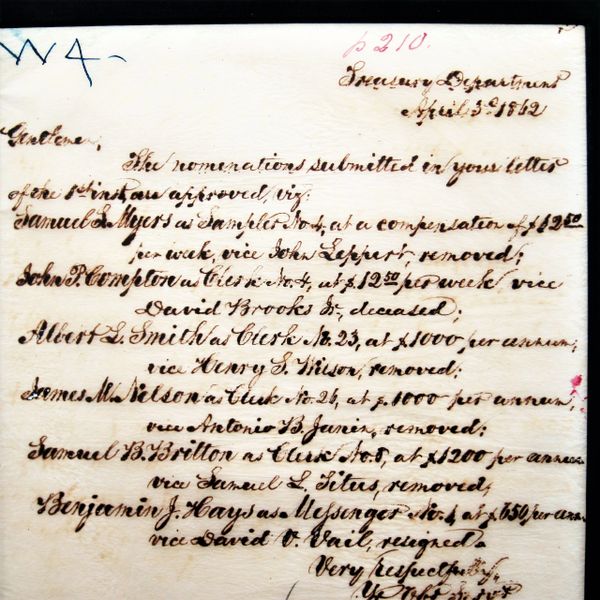 W4-
p 210.
Treasury Department
April 3d 1862
Gentlemen,
The nominations submitted in your letter
of the 1st inst, are approved, viz:
Samuel S. Myers as Sampler No. 4, at a compensation of $12.50
per week, vice John Leppert, removed;
John P. Compton as Clerk No. 4, at $12.50 per week vice
David Brooks Jr, deceased;
Albert L. Smith as Clerk No. 23, at $1000 per annum,
vice Henry S. Wilson, removed;
James M. Nelson as Clerk No. 26, at $1000 per annum,
vice Antonio B. Janin, removed;
Samuel B. Britton as Clerk No. 8, at $1200 per annum
vice Samuel L. Titus, removed,
Benjamin J. Hays as Messenger No. 4, at $650 per ann.
vice David V. Vail, resigned.
Very respectfully,
Yr Obt Servt